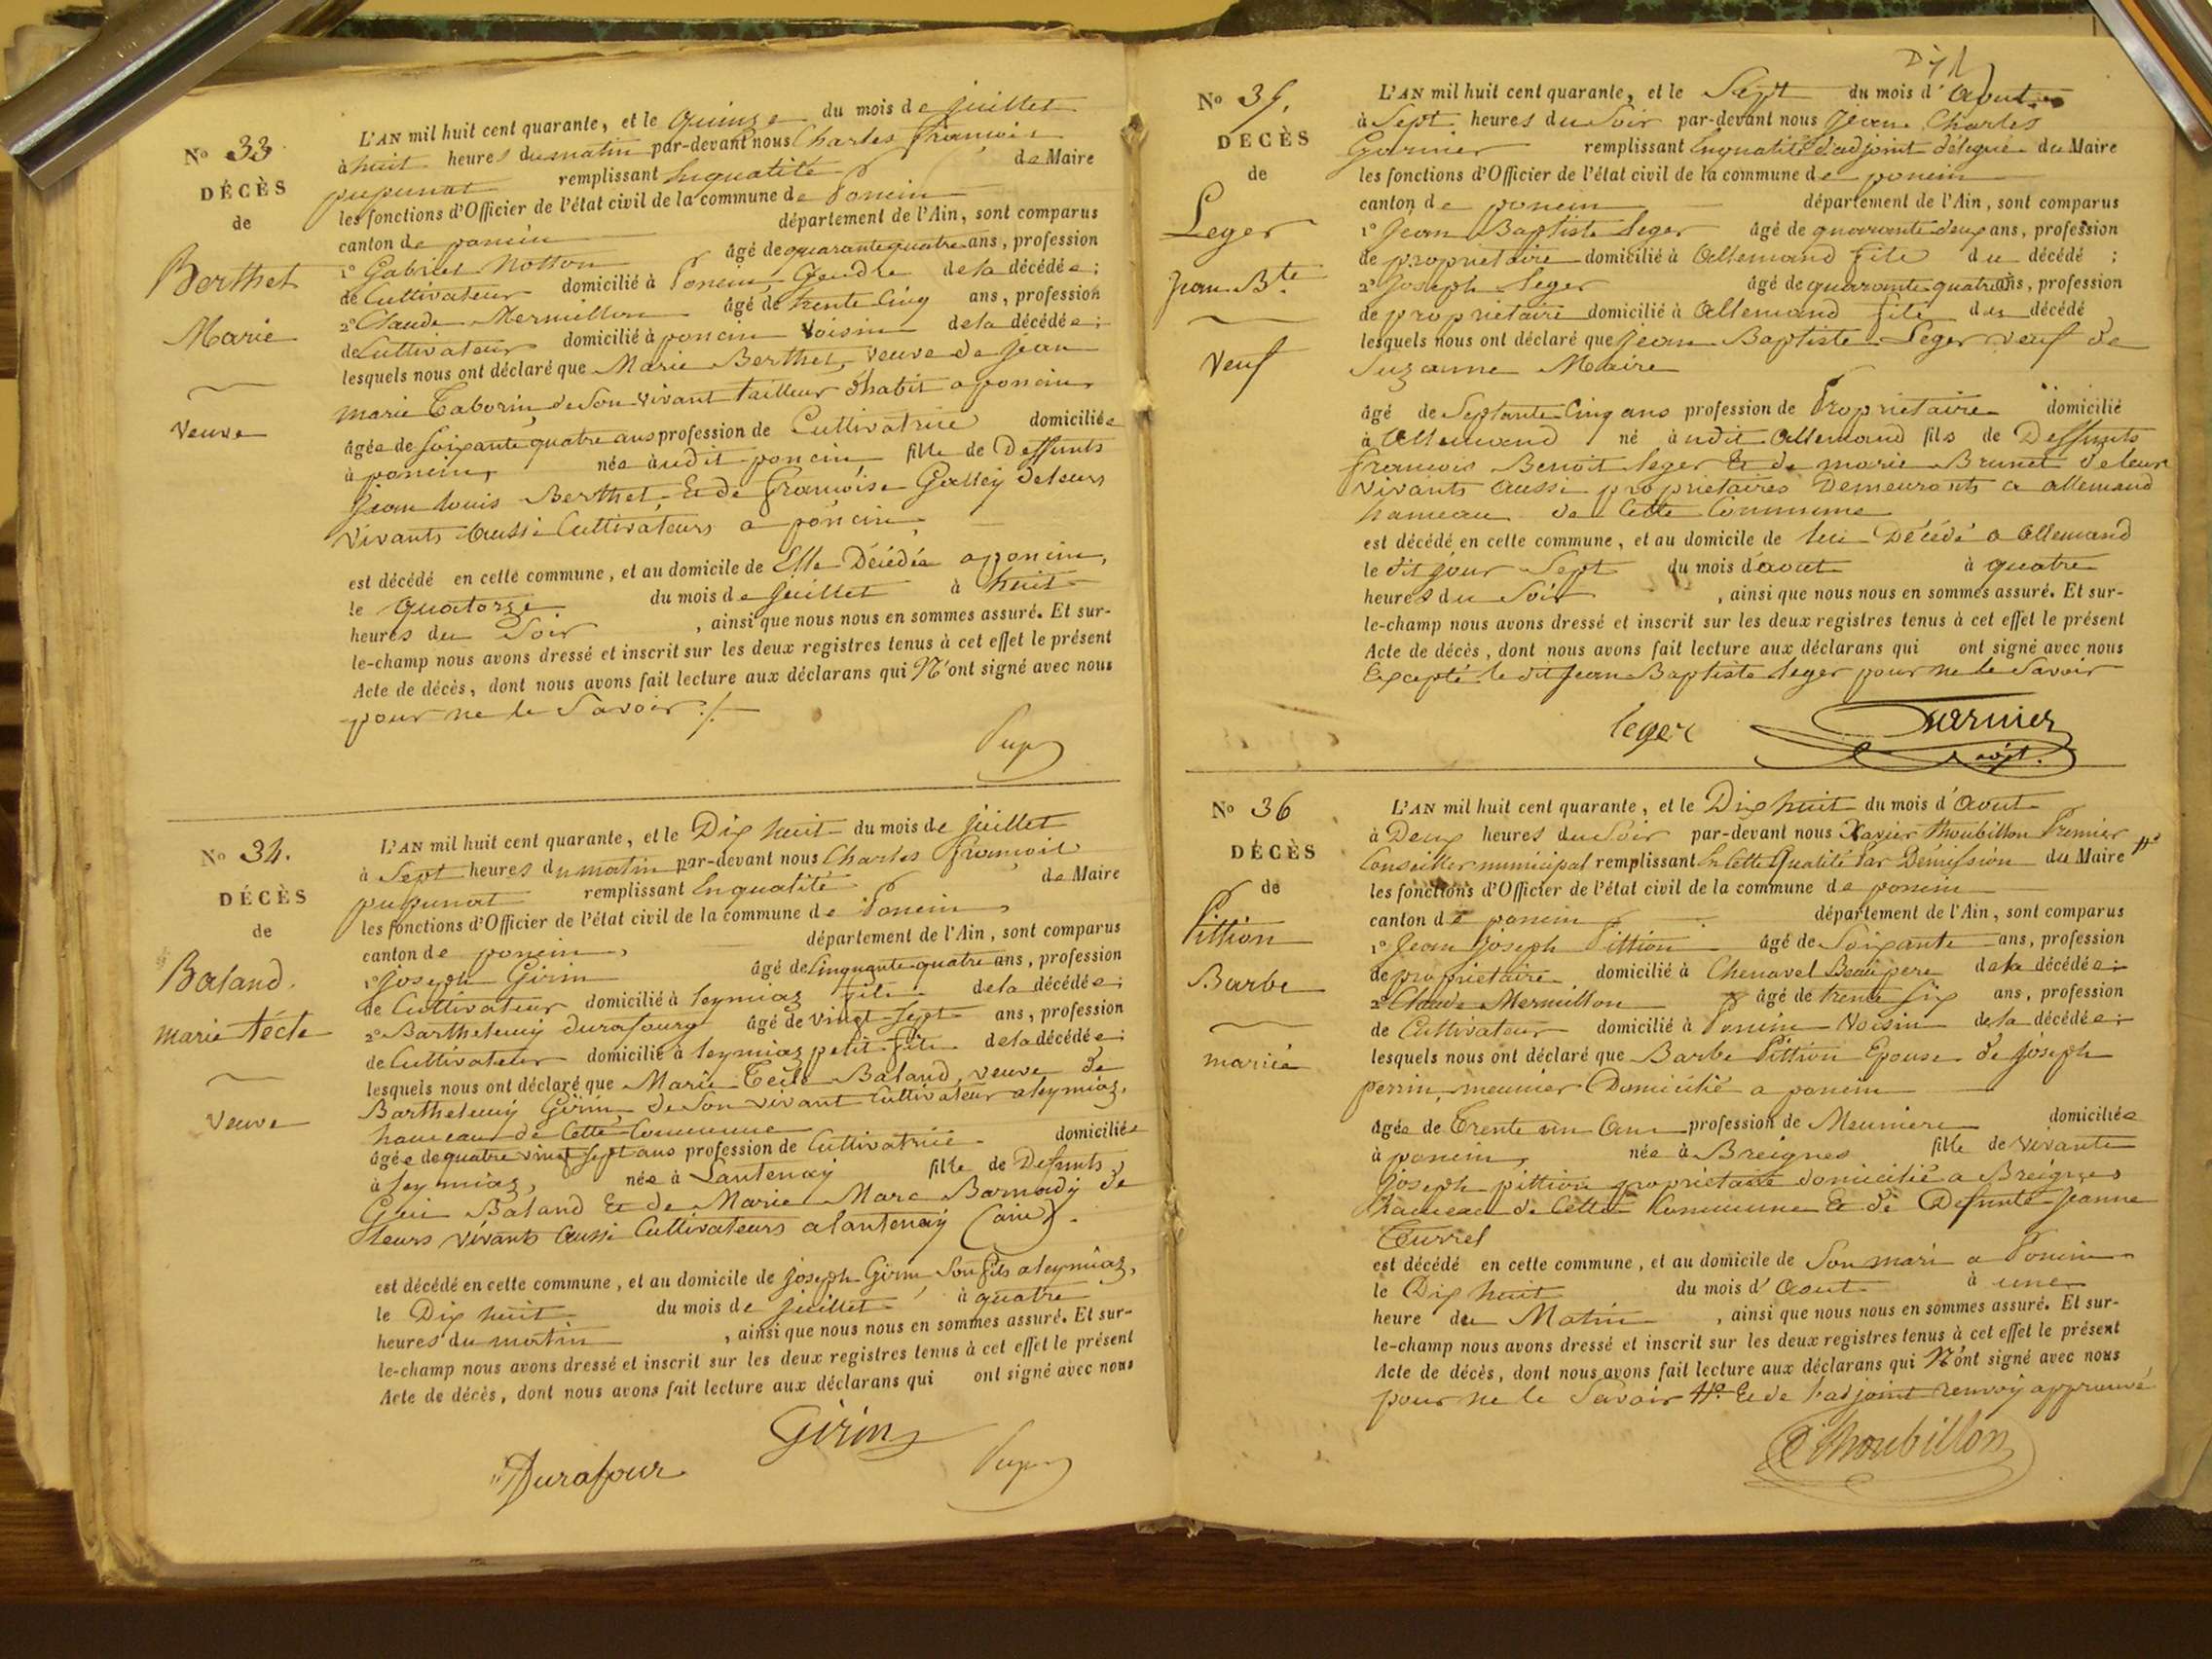 No 33.
DÉCÈS
de
Berthet
Marie
veuve
L'AN mil huit cent quarante, et le Quinze du mois de juillet
à huit heures du matin par-devant nous Charles françois
pupunat remplissant Enqualité de Maire
les fonctions d'Officier de l'état civil de la commune de Poncin
canton de poncin département de l'Ain, sont comparus
1° Gabriel Notton âgé de quarante quatre ans, profession
de Cultivateur domicilié à Poncin, Gendre de la décédée;
2° Claude Mermillon âgé de trente Cinq ans, profession
de Cultivateur domicilié à poncin Voisin de la décédée;
lesquels nous ont déclaré que Marie Berthet, veuve de Jean
marie Taborin, de Son vivant tailleur d'habit a poncin,
âgée de Soixante quatre ans profession de Cultivatrice domiciliée
à poncin, née à udit poncin fille de Deffunts
Jean louis Berthet Et de françoise Galley deleurs
vivants Aussi Cultivateurs a poncin
est décédé en cette commune, et au domicile de Elle Décédée a poncin,
le Quatorze du mois de juillet à huit
heures du Soir, ainsi que nous nous en sommes assuré. Et sur-
le-champ nous avons dressé et inscrit sur les deux registres tenus à cet effet le présent
Acte de décès, dont nous avons fait lecture aux déclarans qui N'ont signé avec nous
pour ne le Savoir ./.
Pup
No 34.
DÉCÈS
de
Baland.
marie técle
Veuve
L'AN mil huit cent quarante, et le Dix huit du mois de juillet
à Sept heures du matin par-devant nous Charles françois
pupunat remplissant Enqualité de Maire
les fonctions d'Officier de l'état civil de la commune de Poncin,
canton de poncin, département de l'Ain, sont comparus
1° Joseph Girin âgé de Cinquante quatre ans, profession
de Cultivateur domicilié à leymiaz fils de la décédée;
2° Barthelemy durafourg âgé de vingt Sept ans, profession
de Cultivateur domicilié à leymiaz petit fils de la décédée;
lesquels nous ont déclaré que Marie Técle Baland, veuve de
Barthelemy Girin, de Son vivant Cultivateur a leymiaz,
hameau de Cette Commune
âgée de quatre vingt Sept ans profession de Cultivatrice domiciliée
à leymiaz, née à Lantenay fille de Defunts
Baland Et de Marie Marc Barnady de
leurs vivants Aussi Cultivateurs a lantenay (ain).
est décédé en cette commune, et au domicile de joseph Girin Son fils a leymiaz,
le Dix huit du mois de juillet à quatre
heures du matin, ainsi que nous nous en sommes assuré. Et sur-
le-champ nous avons dressé et inscrit sur les deux registres tenus à cet effet le présent
Acte de décès, dont nous avons fait lecture aux déclarans qui ont signé avec nous
Girin
Durafour
Pup
No 35.
DÉCÈS
de
Leger
Jean Bte
Veuf
L'AN mil huit cent quarante, et le Sept du mois d'Aout
à Sept heures du Soir par-devant nous Jean Charles
Garnier remplissant Enqualité d'adjoint délégué du Maire
les fonctions d'Officier de l'état civil de la commune de poncin
canton de poncin département de l'Ain, sont comparus
1° Jean Baptiste leger âgé de quarante deux ans, profession
de proprietaire domicilié à Allemand fils du décédé;
2° Joseph leger âgé de quarante quatre ans, profession
de proprietaire domicilié à Allemand fils du décédé
lesquels nous ont déclaré que Jean Baptiste Leger veuf de
Suzanne Maire
âgé de Septante Cinq ans profession de Proprietaire domicilié
à Allemand né à udit Allemand fils de Deffunts
françois Benoit leger Et de marie Brunet deleur
vivants Aussi proprietaires Demeurants a allemand
hameau de Cette Commune
est décédé en cette commune, et au domicile de lui Décédé a Allemand
le dit jour Sept du mois d'aout à quatre
heures du Soir, ainsi que nous nous en sommes assuré. Et sur-
le-champ nous avons dressé et inscrit sur les deux registres tenus à cet effet le présent
Acte de décès, dont nous avons fait lecture aux déclarans qui ont signé avec nous
Excepté le dit Jean Baptiste leger pour ne le Savoir
leger
Garnier
adjt.
No 36
DÉCÈS
de
Pittion
Barbe
mariée
L'AN mil huit cent quarante, et le Dix huit du mois d'Aout
à Deux heures du Soir par-devant nous Xavier thoubillon Premier
Conseiller municipal remplissant En Cette Qualité Par Démission du Maire
les fonctions d'Officier de l'état civil de la commune de poncin
canton de poncin département de l'Ain, sont comparus
1° Jean Joseph Pittion âgé de Soixante ans, profession
de proprietaire domicilié à Chenavel Beaupere de la décédée;
2° Claude Mermillon âgé de trente Six ans, profession
de Cultivateur domicilié à Poncin Voisin de la décédée;
lesquels nous ont déclaré que Barbe Pittion Epouse de Joseph
perrin, meunier Domicilié a poncin
âgée de Trente un Ans profession de Meunière domiciliée
à poncin, née à Breignes fille de vivante
Joseph pittion proprietaire domicilié a Breignes
hameau de Cette Commune Et de Defunte Jeanne
Turrel
est décédé en cette commune, et au domicile de Son mari a Poncin
le Dix huit du mois d'Aout à une
heure du Matin, ainsi que nous nous en sommes assuré. Et sur-
le-champ nous avons dressé et inscrit sur les deux registres tenus à cet effet le présent
Acte de décès, dont nous avons fait lecture aux déclarans qui N'ont signé avec nous
pour ne le Savoir Et de l'adjoint renvoy approuvé
Thoubillon